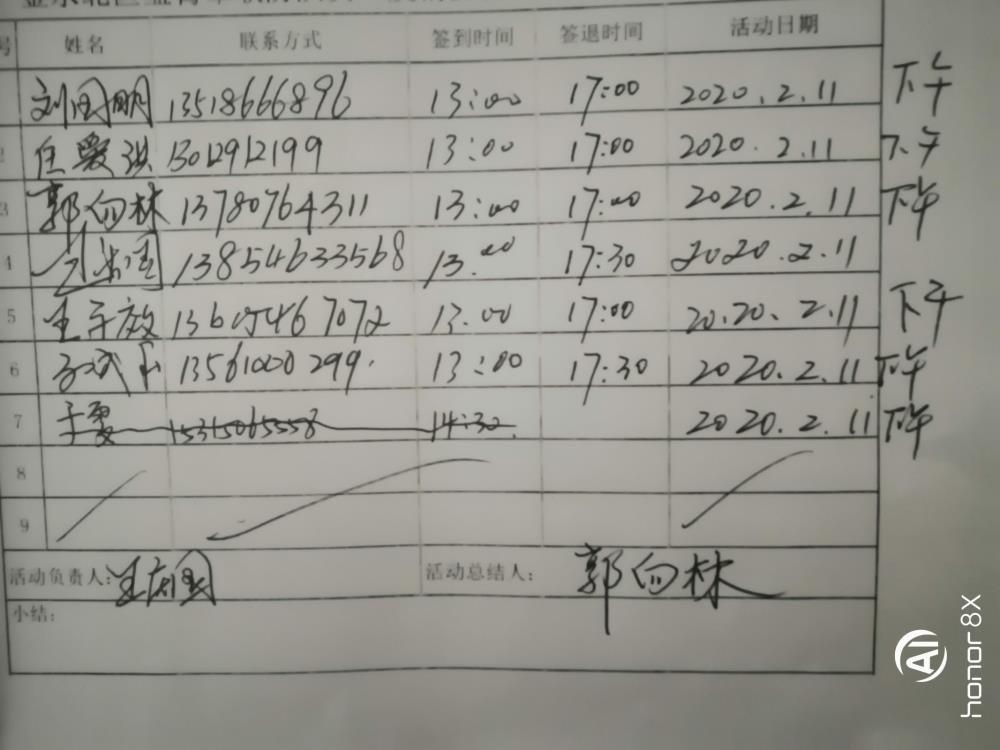 号 姓名 联系方式 签到时间 签退时间 活动日期
刘国明 13518666896 13:00 17:00 2020.2.11 下午
2 任爱洪 13012912199 13:00 17:00 2020.2.11 下午
3 郭向林 13780764311 13:00 17:00 2020.2.11 下午
4 13854633568 13:00 17:30 2020.2.11
5 王子效 13605467072 13:00 17:00 2020.2.11 下午
6 13561000299 13:00 17:30 2020.2.11 下午
7 于爱 15315065558 14:30 2020.2.11 下午
8
9
活动负责人: 活动总结人: 郭向林
小结:
AI honor 8X